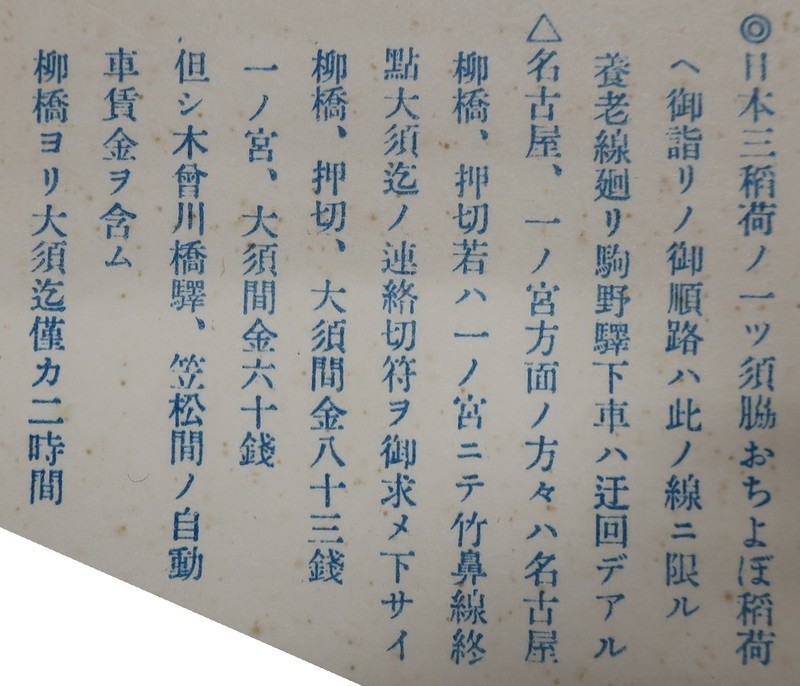 ◎日本三稻荷ノ一ツ須脇おちよぼ稻荷
ヘ御詣リノ御順路ハ此ノ線ニ限ル
養老線廻リ駒野驛下車ハ迂回デアル
△名古屋、一ノ宮方面ノ方々ハ名古屋
柳橋、押切若ハ一ノ宮ニテ竹鼻線終
點大須迄ノ連絡切符ヲ御求メ下サイ
柳橋、押切、大須間金八十三錢
一ノ宮、大須間金六十錢
但シ木曾川橋驛、笠松間ノ自動
車賃金ヲ含ム
柳橋ヨリ大須迄僅カ二時間